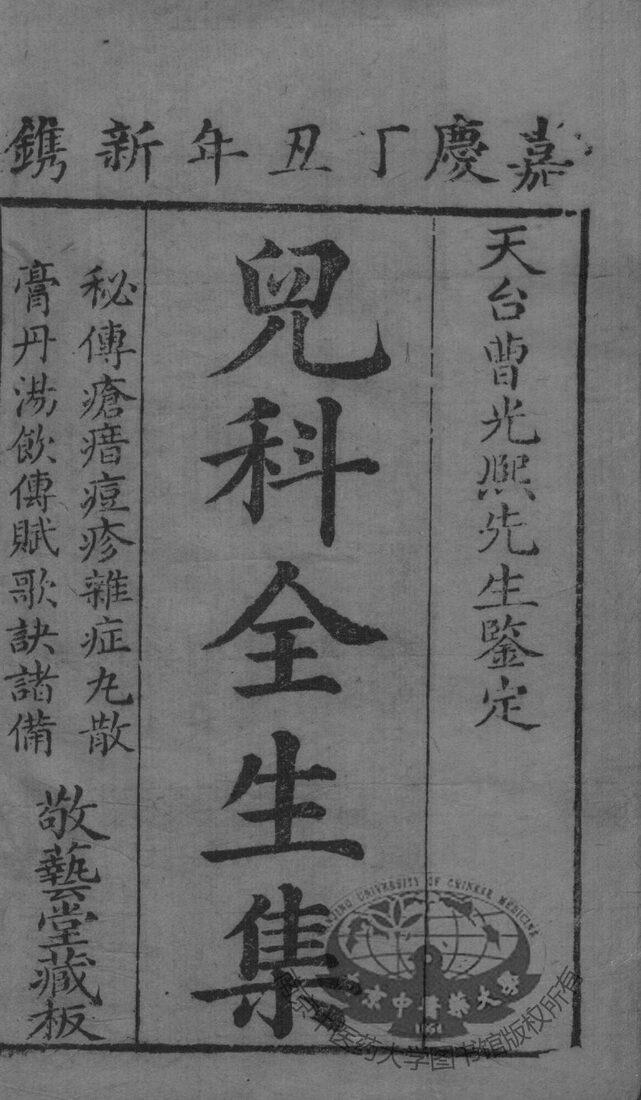 嘉慶丁丑年新鐫
天台曹光熙先生鑒定
兒科全生集
秘傳瘡瘄痘疹雜症丸散
膏丹湯飲傳賦歌訣諸備
敬藝堂藏板
NANJING UNIVERSITY OF CHINESE MEDICINE
南京中醫藥大學
1954
南京中医药大学图书馆版权所有